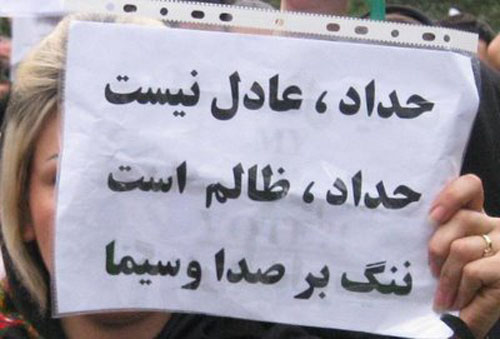 حداد ، عادل نیست
حداد ، ظالم است
ننگ بر صدا وسیما